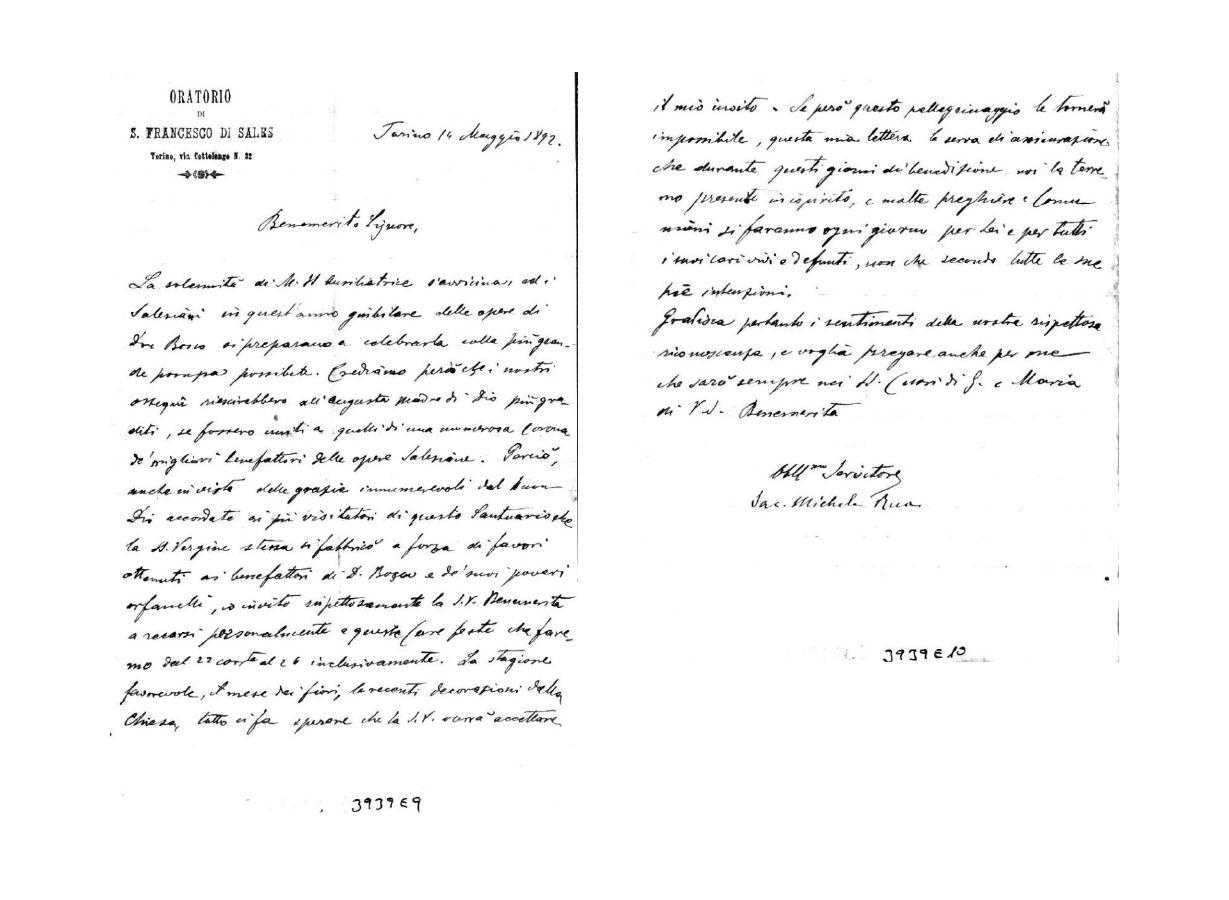 ORATORIO
DI
S. FRANCESCO DI SALES
Torino, via Cottolengo N. 32
Torino 14 Maggio 1892.
Benemerito Signore,
La solennità di M. SS Ausiliatrice s'avvicina, ed i
Salesiani in quest'anno giubilare delle opere di
Don Bosco si preparano a celebrarla colla più gran-
de pompa possibile. Crediamo però che i nostri
ossequi riescirebbero all'augusta madre di Dio più gra-
diti, se fossero uniti a quelli di una numerosa Corona
de' migliori benefattori delle opere Salesiane. Perciò,
anche in vista delle grazie innumerevoli dal buon
Dio accordate ai più visitatori di questo Santuario che
la SS. Vergine stessa si fabbricò a forza di favori
ottenuti ai benefattori di D. Bosco e de' suoi poveri
orfanelli, io invito rispettosamente la S.V. Benemerita
a recarsi personalmente a queste care feste che fare-
mo dal 22 corte al 26 inclusivamente. La stagione
favorevole, il mese dei fiori, le recenti decorazioni della
Chiesa, tutto ci fa sperare che la S.V. vorrà accettare
3939E9
il mio invito. Se però questo pellegrinaggio le tornerà
impossibile, questa mia lettera le serva di assicurazione
che durante questi giorni di benedizione noi la terre-
mo presente in ispirito, e molte preghiere e Comu-
nioni si faranno ogni giorno per Lei e per tutti
i suoi cari vivi e defunti, non che secondo tutte le sue
pie intenzioni.
Gradisca pertanto i sentimenti della nostra rispettosa
riconoscenza, e voglia pregare anche per me
che sarò sempre nei SS. Cuori di G. e Maria
di V.S. Benemerita
Obbl.mo Servitore
Sac. Michele Rua
3939E10